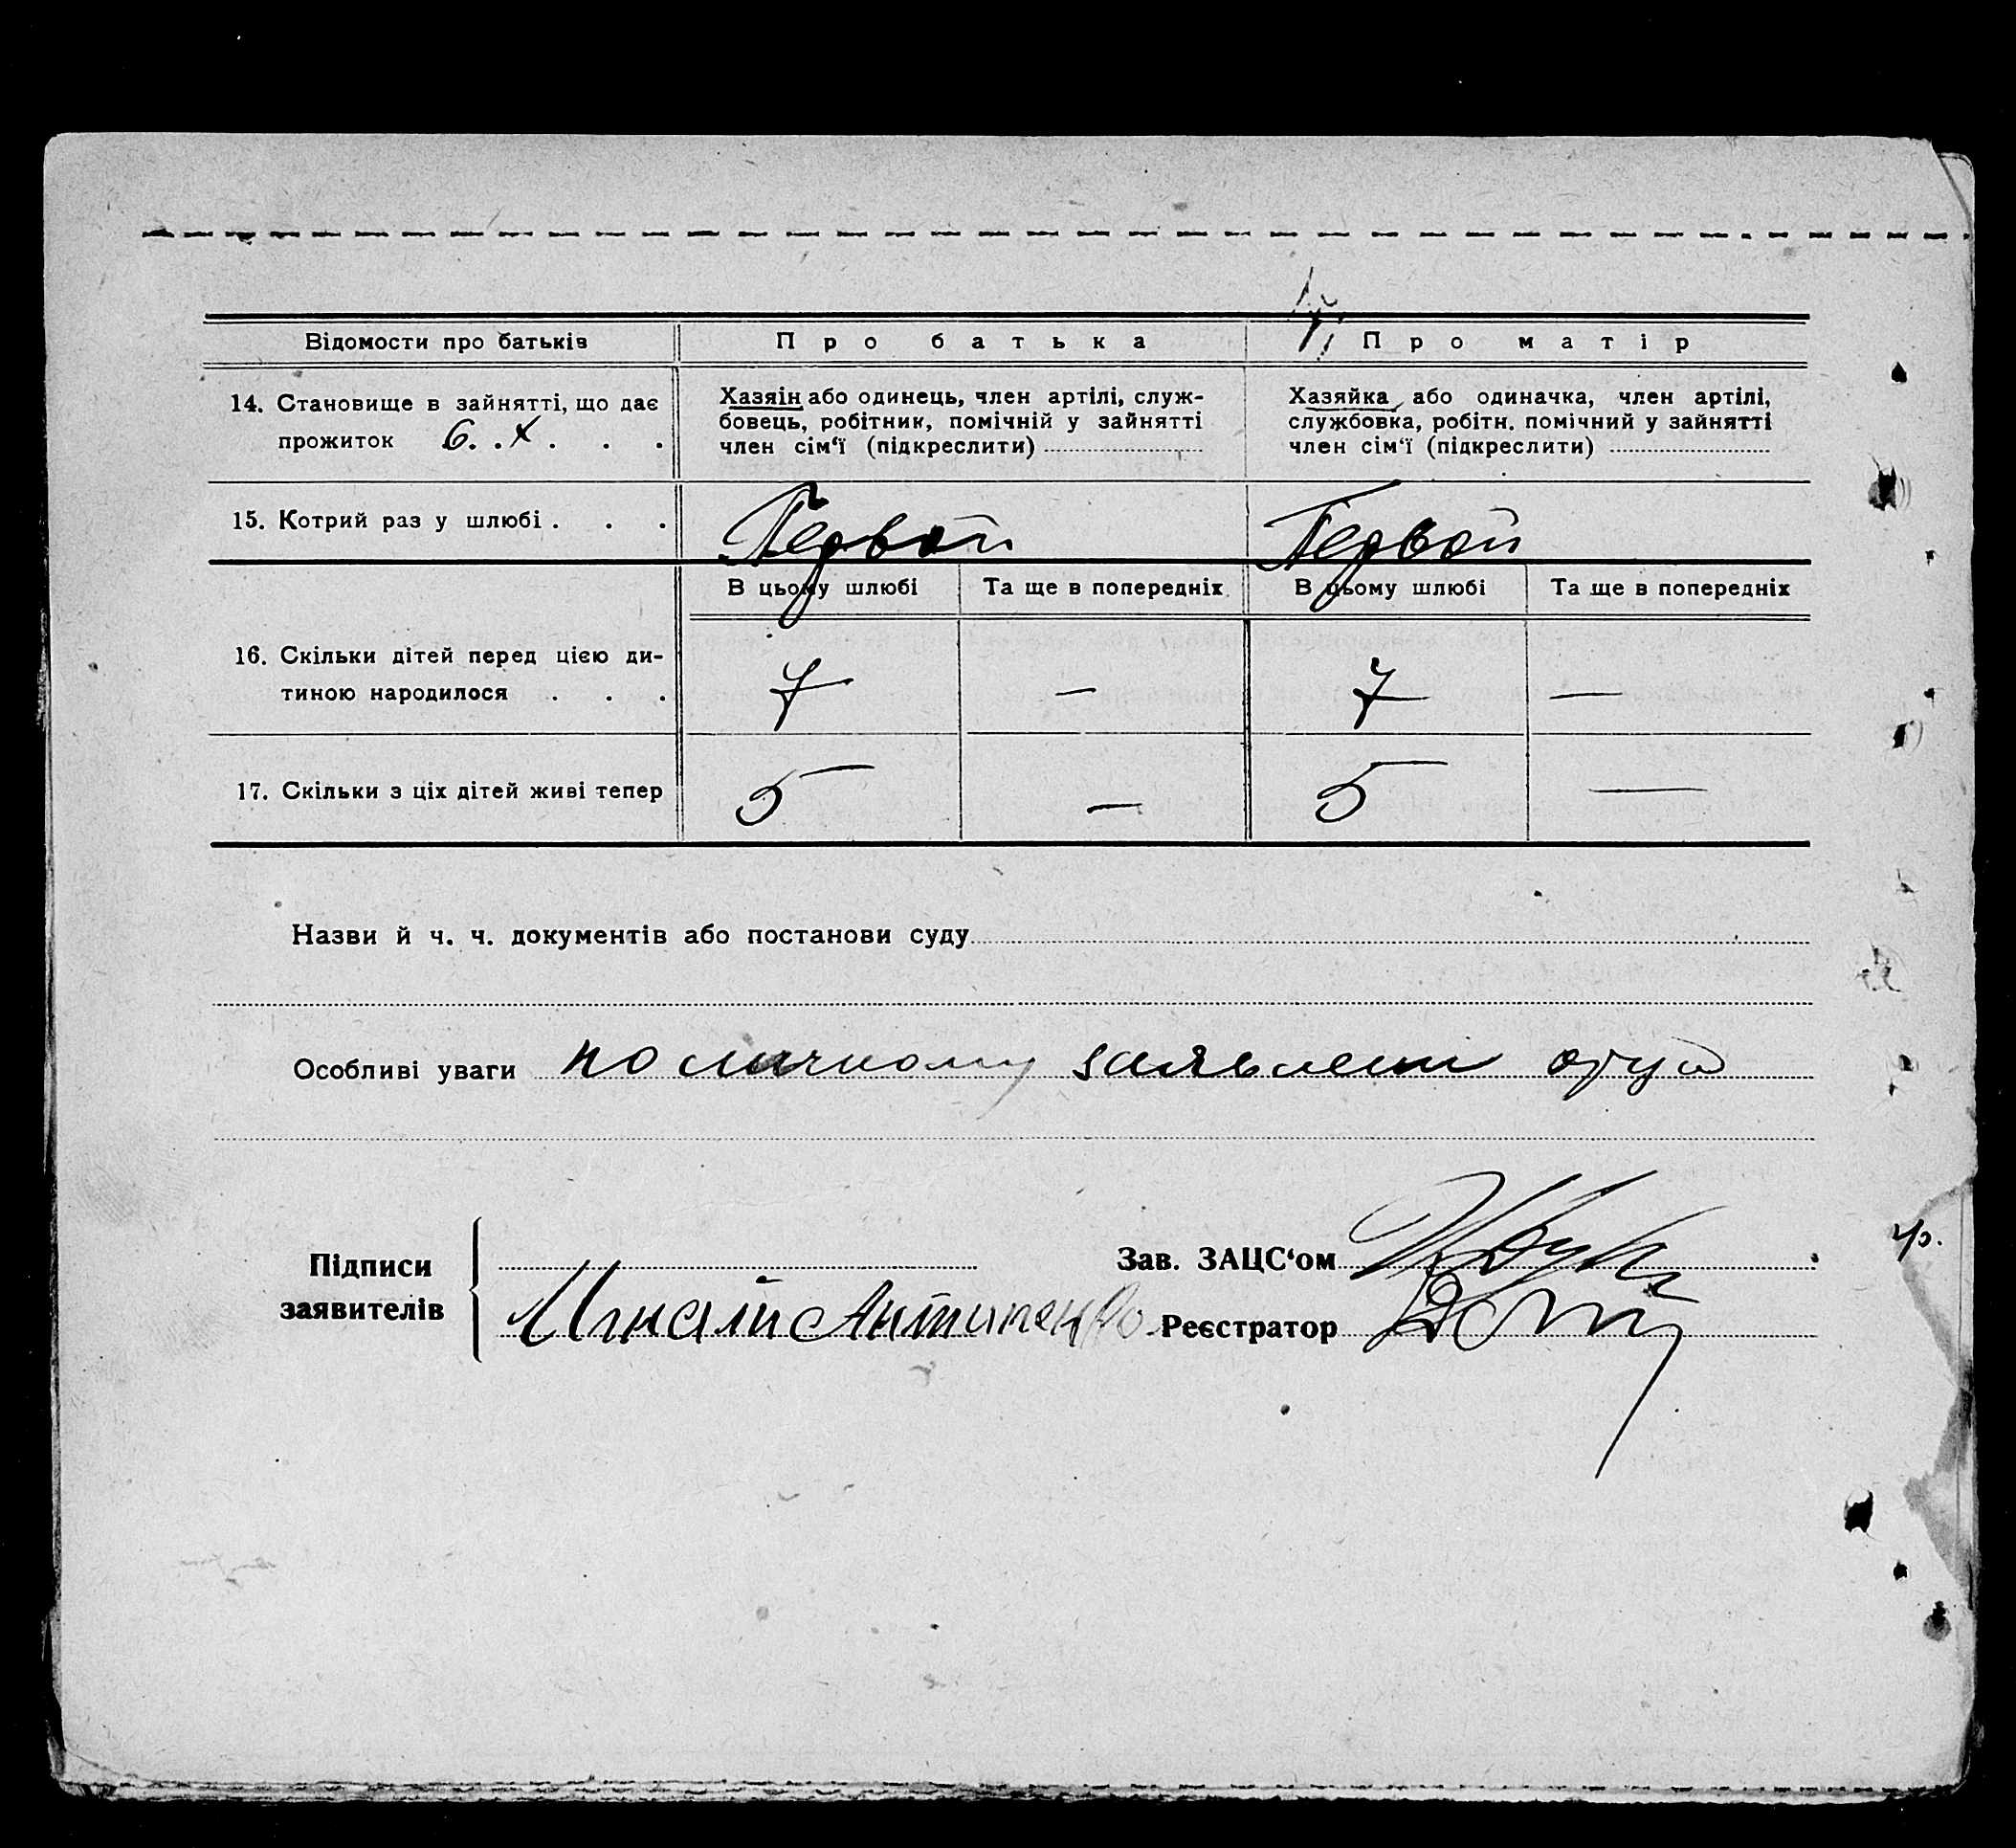 Відомости про батьків
Про батька
Про матір
14. Становище в зайнятті, що дає
прожиток б. .х. . .
Хазяін або одинець, член артілі, служ-
бовець, робітник, помічній у зайнятті
член сім‘ї (підкреслити)
Хазяйка або одиначка, член артілі,
службовка, робітн. помічний у зайнятті
член сім‘ї (підкреслити)
15. Котрий раз у шлюбі . . .
Первой
Первой
В цьому шлюбі
Та ще в попередніх
В цьому шлюбі
Та ще в попередніх
16. Скільки дітей перед цією ди-
тиною народилося . . .
7
—
7
—
17. Скільки з ціх дітей живі тепер
5
—
5
—
Назви й ч. ч. документів або постанови суду
Особливі уваги по личному заявлені
Підписи
заявителів
Зав. ЗАЦС‘ом
Антипенко
Реєстратор